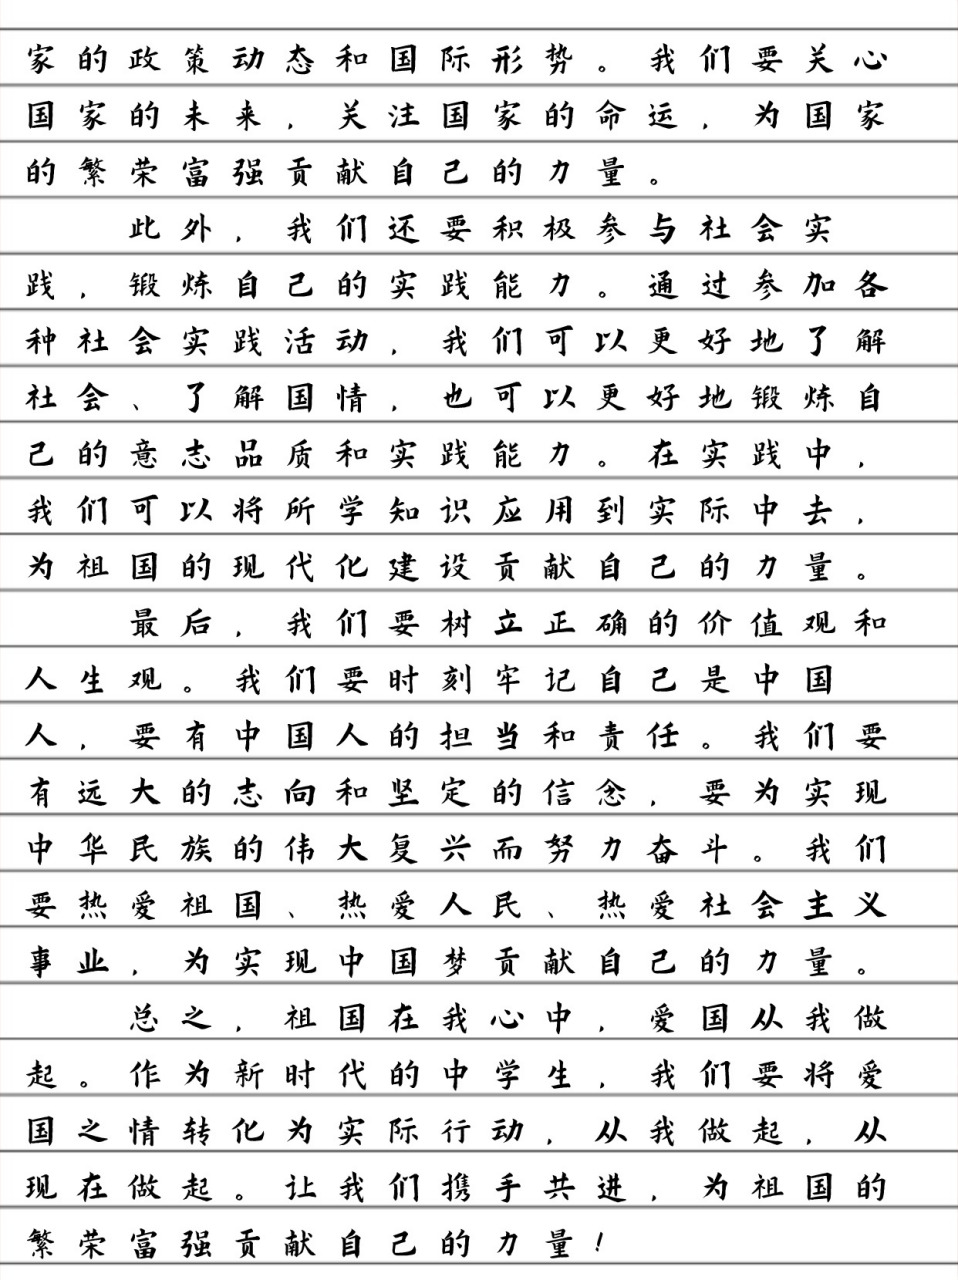 家的政策动态和国际形势。我们要关心
国家的未来，关注国家的命运，为国家
的繁荣富强贡献自己的力量。
此外，我们还要积极参与社会实
践，锻炼自己的实践能力。通过参加各
种社会实践活动，我们可以更好地了解
社会、了解国情，也可以更好地锻炼自
己的意志品质和实践能力。在实践中，
我们可以将所学知识应用到实际中去，
为祖国的现代化建设贡献自己的力量。
最后，我们要树立正确的价值观和
人生观。我们要时刻牢记自己是中国
人，要有中国人的担当和责任。我们要
有远大的志向和坚定的信念，要为实现
中华民族的伟大复兴而努力奋斗。我们
要热爱祖国、热爱人民、热爱社会主义
事业，为实现中国梦贡献自己的力量。
总之，祖国在我心中，爱国从我做
起。作为新时代的中学生，我们要将爱
国之情转化为实际行动，从我做起，从
现在做起。让我们携手共进，为祖国的
繁荣富强贡献自己的力量！